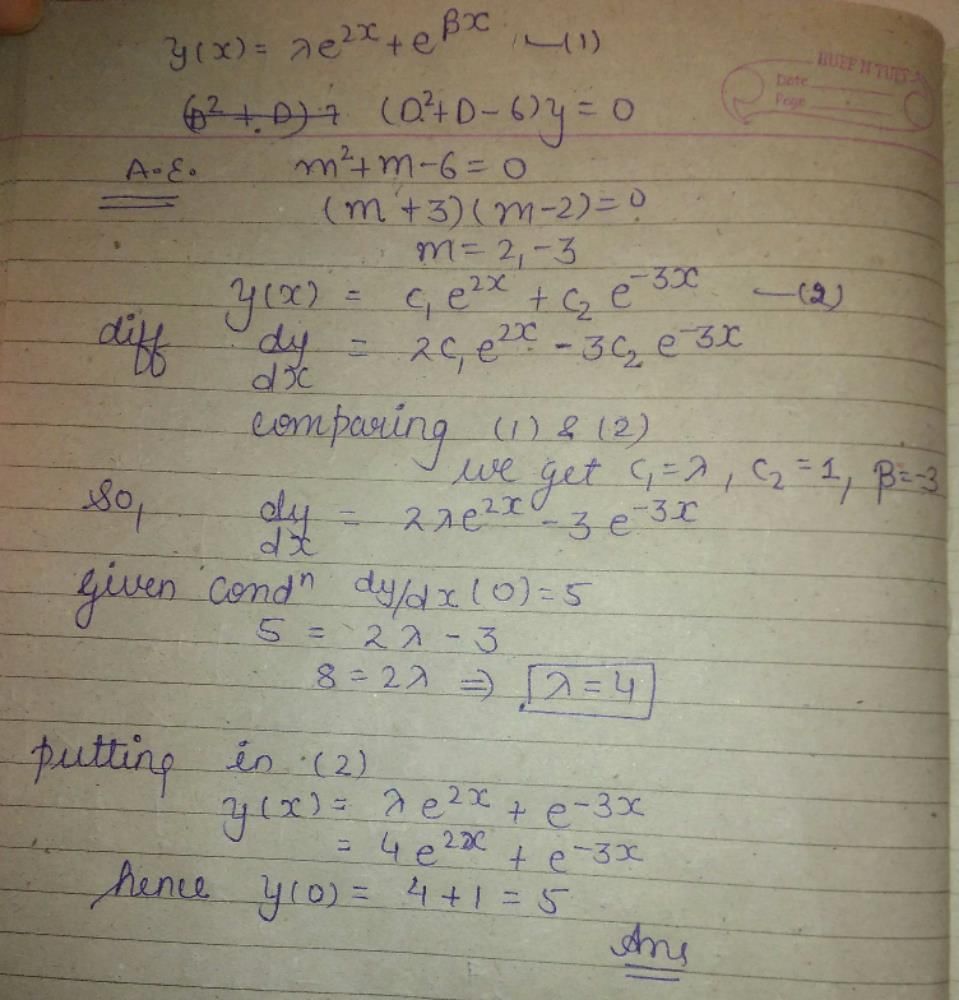 y(x) = λe^{2x} + e^{βx} —(1)
BUFF N TUFF
Date
Page
(D² + D) 7 (D²+D-6)y = 0
A.E. m²+m-6=0
(m+3)(m-2)=0
m= 2,-3
y(x) = c₁e^{2x} + c₂ e^{-3x} —(2)
diff dy/dx = 2c₁e^{2x} - 3c₂ e^{-3x}
comparing (1) & (2)
we get c₁=λ, c₂=1, β=-3
So, dy/dx = 2λe^{2x} - 3e^{-3x}
given condⁿ dy/dx(0)=5
5 = 2λ-3
8=2λ ⇒ λ=4
putting in (2)
y(x) = λe^{2x} + e^{-3x}
= 4e^{2x} + e^{-3x}
hence y(0) = 4+1 = 5
Ans